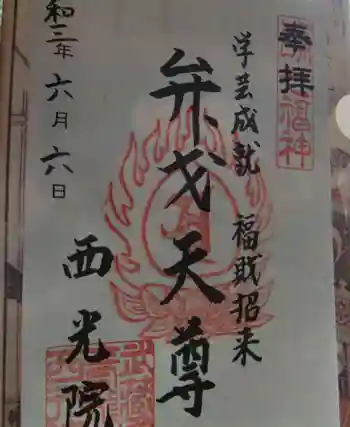 奉拝
学芸成就 福財招来
弁才天尊
西光院
令和三年六月六日